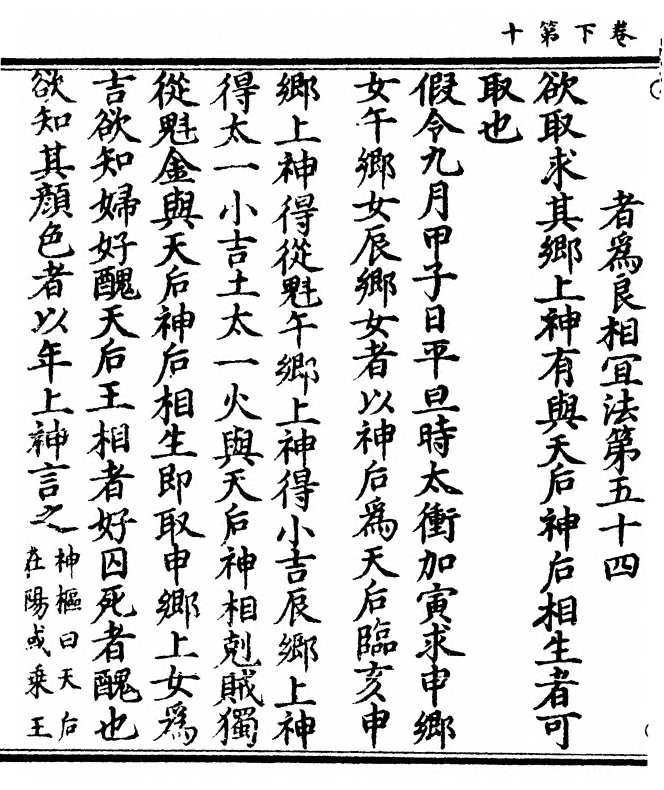 卷下第十
者爲良相宜法第五十四
欲取求其鄉上神有與天后神后相生者可
取也
假令九月甲子日平旦時太衝加寅求申鄉
女午鄉女辰鄉女者以神后爲天后臨亥申
鄉上神得從魁午鄉上神得小吉辰鄉上神
得太一小吉土太一火與天后神相剋賊獨
從魁金與天后神后相生即取申鄉上女爲
吉欲知婦好醜天后王相者好囚死者醜也
欲知其顔色者以年上神言之
神樞曰天后
在陽或乘王